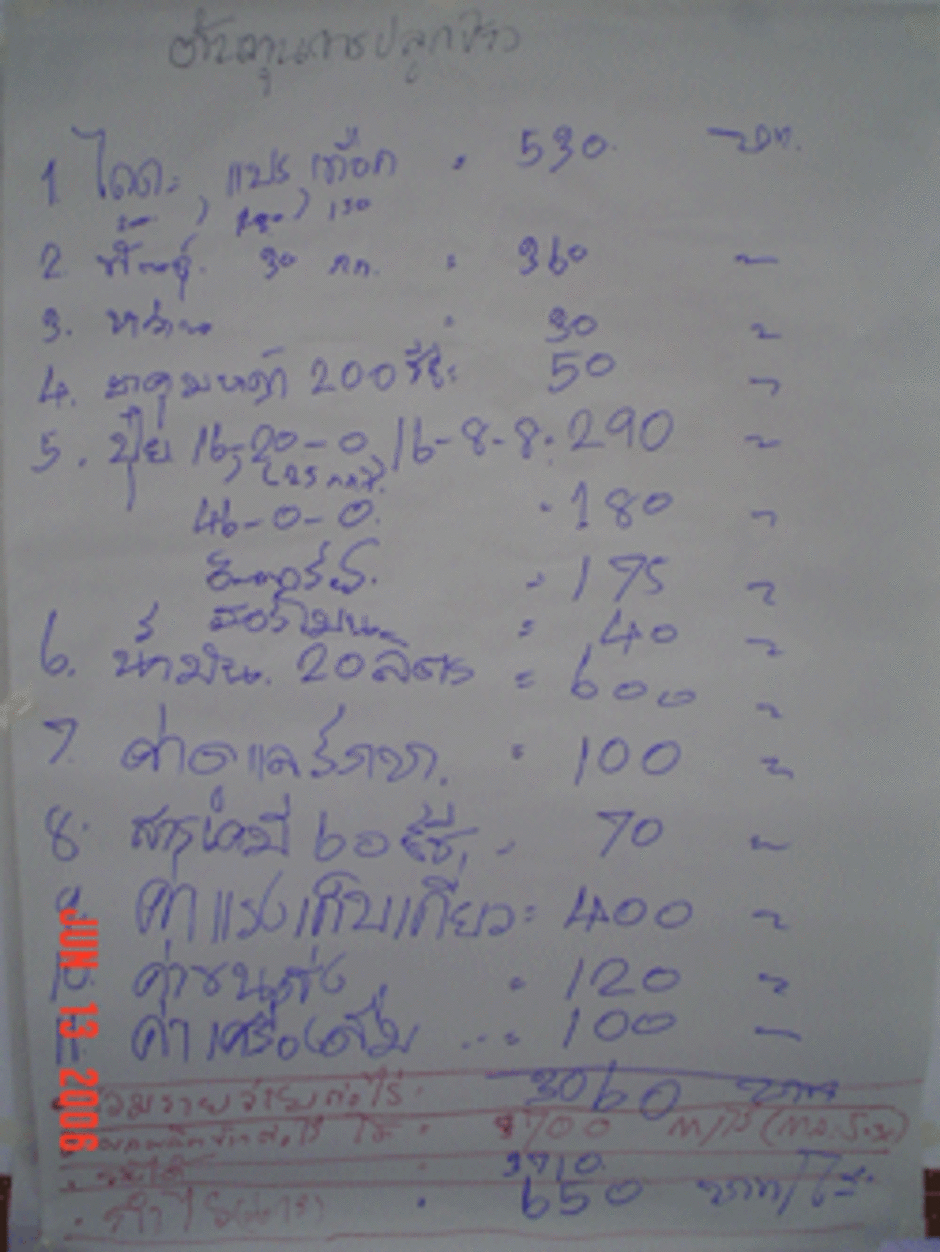 ต้นทุนการปลูกข้าว
1 ไถดะ, แปร, เทือก = 530. บาท.
180 / 150
2 พันธุ์. 30 กก. = 360 "
3. หว่าน = 30 "
4. ยาคุมหญ้า 200 ซีซี = 50 "
5. ปุ๋ย 16-20-0, 16-8-8 = 290 "
46-0-0. = 180 "
อินทรีย์. = 175 "
ฮอร์โมน = 40 "
6. น้ำมัน. 20 ลิตร = 600 "
7. ค่าดูแลรักษา. = 100 "
8. สารเคมี 60 ซีซี. = 70 "
9. ค่าแรงเก็บเกี่ยว = 400 "
10. ค่าขนส่ง = 120 "
11. ค่าเครื่องดื่ม ... = 100 "
รวมรายจ่ายต่อไร่ 3060 บาท
700
รายได้ 3710.
กำไร = 650 บาท/ไร่
JUN 13 2006